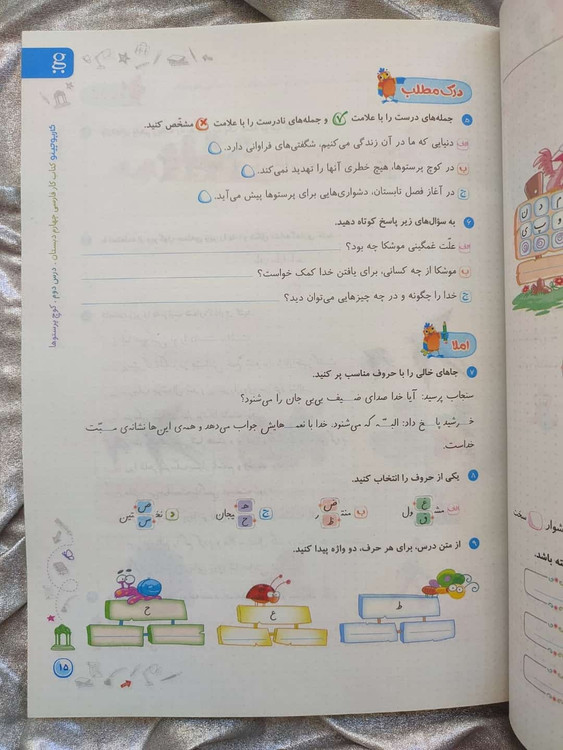 درک مطلب
۵ جمله‌های درست را با علامت ✓ و جمله‌های نادرست را با علامت ✗ مشخّص کنید.
الف دنیایی که ما در آن زندگی می‌کنیم، شگفتی‌های فراوانی دارد.
ب در کوچ پرستوها، هیچ خطری آنها را تهدید نمی‌کند.
ج در آغاز فصل تابستان، دشواری‌هایی برای پرستوها پیش می‌آید.
۶ به سؤال‌های زیر پاسخ کوتاه دهید.
الف علّت غمگینی موشکا چه بود؟
ب موشکا از چه کسانی، برای یافتن خدا کمک خواست؟
ج خدا را چگونه و در چه چیزهایی می‌توان دید؟
املا
۷ جاهای خالی را با حروف مناسب پر کنید.
سنجاب پرسید: آیا خدا صدای ضـ یف بی‌بی جان را می‌شنود؟
خـ رشید پا خ داد: البتّه که می‌شنود. خدا با نعمـ هایش جواب می‌دهد و همه‌ی این‌ها نشانه‌ی مـ بّت
خداست.
۸ یکی از حروف را انتخاب کنید.
الف مشـ غ ق ول ب منتـ ض ظ ر ج هـ حـ یجان د نخـ صـ سـ تین
۹ از متن درس، برای هر حرف، دو واژه پیدا کنید.
ط غ ح
۱۵
کارپوچینو کتاب کار فارسی چهارم دبستان . درس دوم . کوچ پرستوها
شوار سخت
ته باشد.